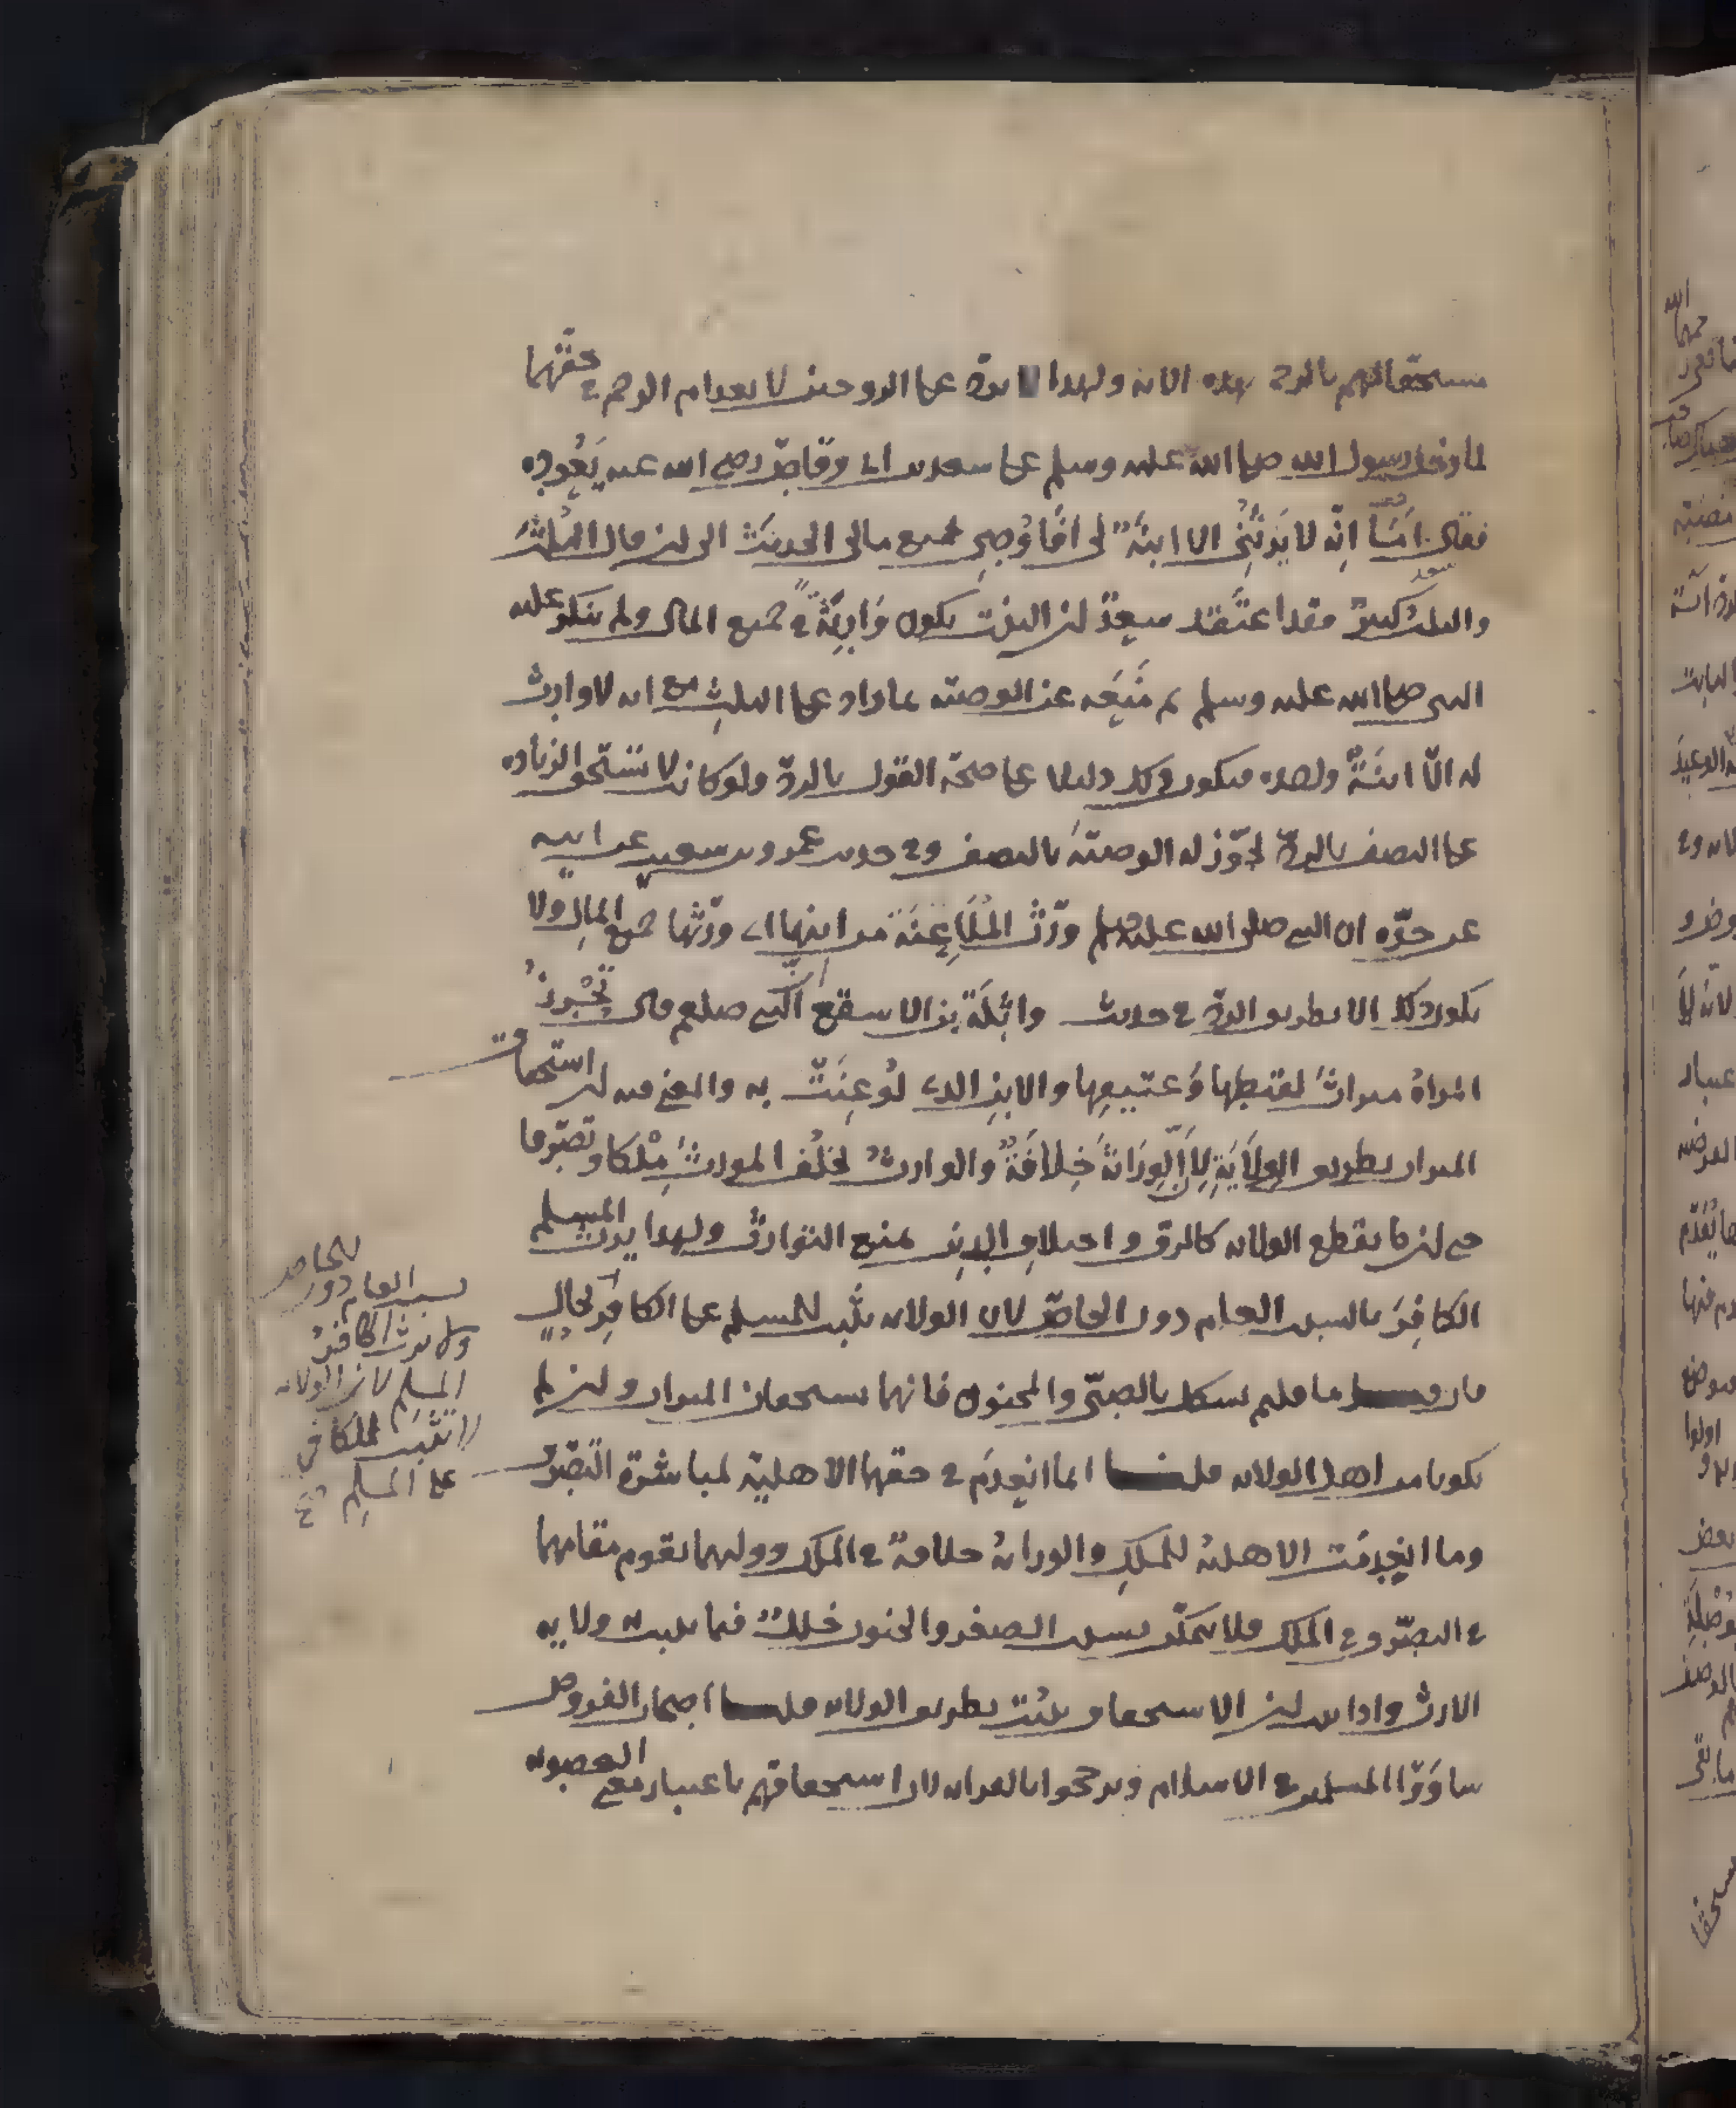 مستحقا لهم بالرحم بهذه الاية ولهذا لا يرد على الزوجين لانعدام الرحم في حقهما
لما دخل رسول الله صلى الله عليه وسلم على سعد بن ابي وقاص رضي الله عنه يَعُوده
فقال اَمَا اِنّه لا يَرِثُنِي الا ابنةٌ لي اَفَاُوصِي بجميع مالي الحديث الى ان قال الثُلث
والثلث كبير فقد اعتَقد سعدٌ ان البنت يكون وَارِثَةً في جميع المال ولم ينكر عليه
النبي صلى الله عليه وسلم ثم مَنَعَه عن الوصية بما زاد على الثلث مع انه لا وارث
له الّا ابنَةٌ واحده فيكون ذلك دليلا على صحة القول بالردّ ولو كانت لا تستحق الزياده
على النصف بالردّ لجوّز له الوصيّة بالنصف وفي حديث عمرو بن سعيب عن ابيه
عن جدّه ان النبي صلى الله عليه وسلم ورّث المُلَاعِنَة من ابنها اي ورّثها جميع المال ولا
يكون ذلك الا بطريق الردّ في حديث واثِلَة بن الاسقع انّ النبي صلعم قال تُحْرِزُ
المراةُ ميراثَ لقيطها وَعتيقها والابن الذي لُوعِنَتْ به والمعنى فيه ان استحقاق
الميراث بطريق الوِلَايَةِ لِاَنَّ الوِرَاثةَ خِلَافَةٌ والوارثُ يخلُف المورثَ مِلْكا وتصرّفا
حتى ان ما يقطع الولايه كالرق واختلاف الدين يمنع التوارثُ ولهذا يرث المسلم
الكافِرَ بالسبب العام دون الخاصّ لان الولايه تثبت للمسلم على الكافِرِ بحالٍ
فان قيل ما قلتم يشكل بالصبيّ والمجنون فانهما يستحقان الميراث وان لم
يكونا من اهل الولايه قلنا انما انعدَم في حقهما الاهلية لمباشرة التصرّف
وما انعدمَت الاهليه للملكِ والوراثهُ خلافةٌ في الملك ووليهما يقوم مقامهما
في التصرّف في الملك فلا يتمكّن بسبب الصغر والجنون خَللٌ فيما يثبت به ولايه
الارث واذا ثبت ان الاستحقاق يثبُت بطريق الولايه قلنا اصحاب الفروض
ساوَوا المسلمين في الاسلام وترجّحوا بالقرابه لان استحقاقهم باعتبار معنى العصوبه
بسبب العام دون الخاص
ولا يرث الكافرُ
المسلم لان الولايه
لا تثبت للكافر
على المسلِم صح